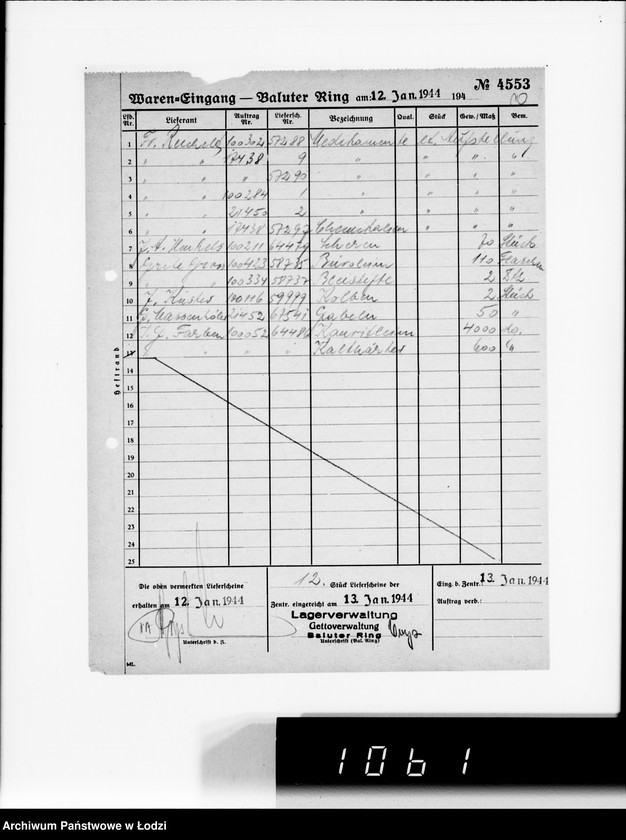 № 4553
Waren-Eingang — Baluter Ring am: 12. Jan. 1944 194
Lfd. Nr. Lieferant Auftrag Nr. Liefersch. Nr. Bezeichnung Qual. Stück Gew./Maß Bem.
1 Fr. 100302 57288 lt. Aufstellung
2 " " 17438 9 " " " "
3 " " " 57290 " " " "
4 " " 100284 1 " " " "
5 " " 21450 2 " " " "
6 " " 17438 " " "
7 100211 Scheren 70 Stück
8 100423 58735 Büroleim 110 Flaschen
9 " " 100334 58737 Bleistifte 2 Dtz
10 J. Küster 100116 59999 Kolben 2 Stück
11 21452 67541 Gabeln 50 "
12 I. G. Farben 100052 64486 Kauritleim 4000 do.
13 " " " " Kalthärter 600 "
14
15
16
17
18
19
20
21
22
23
24
25
Heftrand
Die oben vermerkten Lieferscheine
erhalten am 12. Jan. 1944
Unterschrift d. F.
12. Stück Lieferscheine der
Zentr. eingereicht am 13. Jan. 1944
Lagerverwaltung
Gettoverwaltung
Baluter Ring
Unterschrift (Bal. Ring)
Eing. b. Zentr.: 13. Jan. 1944
Auftrag verb.:
ML.
1061
Archiwum Państwowe w Łodzi